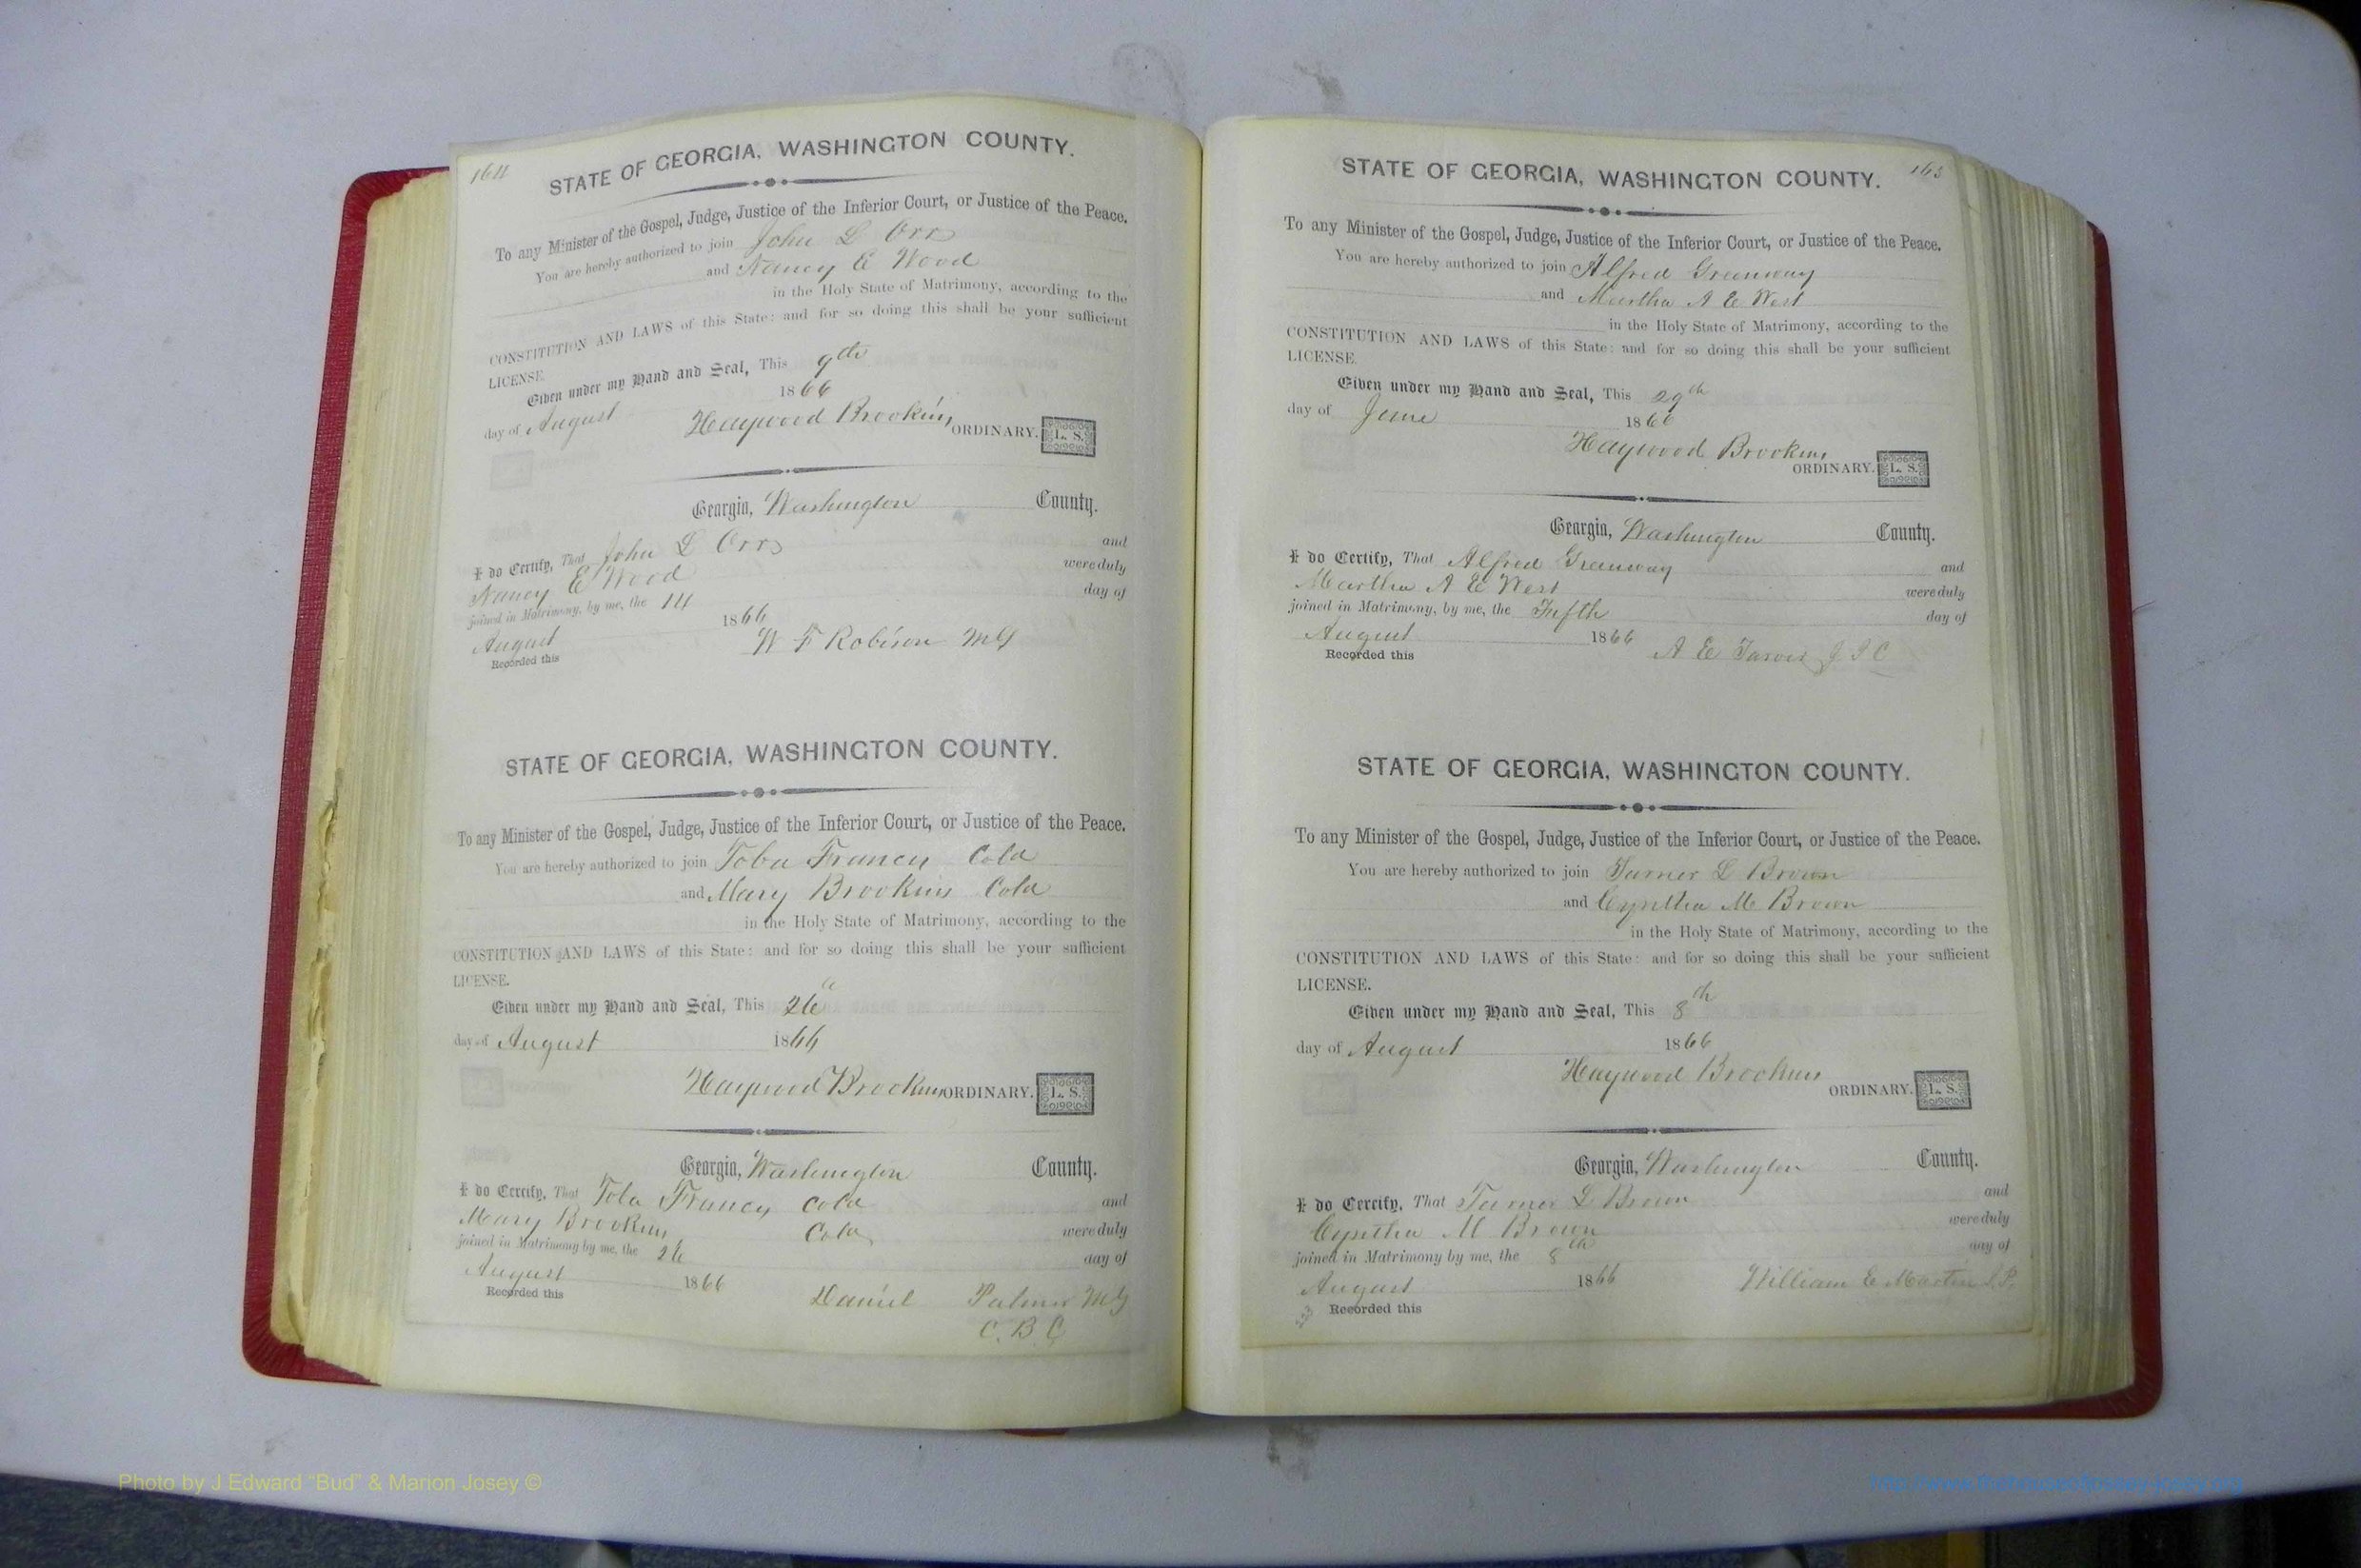 164
STATE OF GEORGIA, WASHINGTON COUNTY.
To any Minister of the Gospel, Judge, Justice of the Inferior Court, or Justice of the Peace.
You are hereby authorized to join John L Orr
and Nancy E Wood
in the Holy State of Matrimony, according to the
CONSTITUTION AND LAWS of this State: and for so doing this shall be your sufficient
LICENSE.
Given under my Hand and Seal, This 9th
day of August 1866
Haywood Brookins ORDINARY. L. S.
Georgia, Washington County.
I do Certify, That John L Orr and
Nancy E Wood were duly
joined in Matrimony, by me, the 14 day of
August 1866
W F Robison MG
Recorded this
STATE OF GEORGIA, WASHINGTON COUNTY.
To any Minister of the Gospel, Judge, Justice of the Inferior Court, or Justice of the Peace.
You are hereby authorized to join Francis Cold
and Mary Brookins Cold
in the Holy State of Matrimony, according to the
CONSTITUTION AND LAWS of this State: and for so doing this shall be your sufficient
LICENSE.
Given under my Hand and Seal, This 26
day of August 1866
Haywood Brookins ORDINARY. L. S.
Georgia, Washington County.
I do Certify, That Francis Cold and
Mary Brookins Cold were duly
joined in Matrimony by me, the 26 day of
August 1866
Daniel Palmer MG
C. B. C
Recorded this
STATE OF GEORGIA, WASHINGTON COUNTY. 163
To any Minister of the Gospel, Judge, Justice of the Inferior Court, or Justice of the Peace.
You are hereby authorized to join Alfred Greenway
and Martha A E West
in the Holy State of Matrimony, according to the
CONSTITUTION AND LAWS of this State: and for so doing this shall be your sufficient
LICENSE.
Given under my Hand and Seal, This 29th
day of June 1866
Haywood Brookins
ORDINARY. L. S.
Georgia, Washington County.
I do Certify, That Alfred Greenway and
Martha A E West were duly
joined in Matrimony, by me, the Fifth day of
August 1866
A E Tarver J I C
Recorded this
STATE OF GEORGIA, WASHINGTON COUNTY.
To any Minister of the Gospel, Judge, Justice of the Inferior Court, or Justice of the Peace.
You are hereby authorized to join Turner L Brown
and Cynthia M Brown
in the Holy State of Matrimony, according to the
CONSTITUTION AND LAWS of this State: and for so doing this shall be your sufficient
LICENSE.
Given under my Hand and Seal, This 8th
day of August 1866
Haywood Brookins
ORDINARY. L. S.
Georgia, Washington County.
I do Certify, That Turner L Brown and
Cynthia M Brown were duly
joined in Matrimony by me, the 8th day of
August 1866
William E Martin J.P.
Recorded this
Photo by J Edward “Bud” & Marion Josey ©